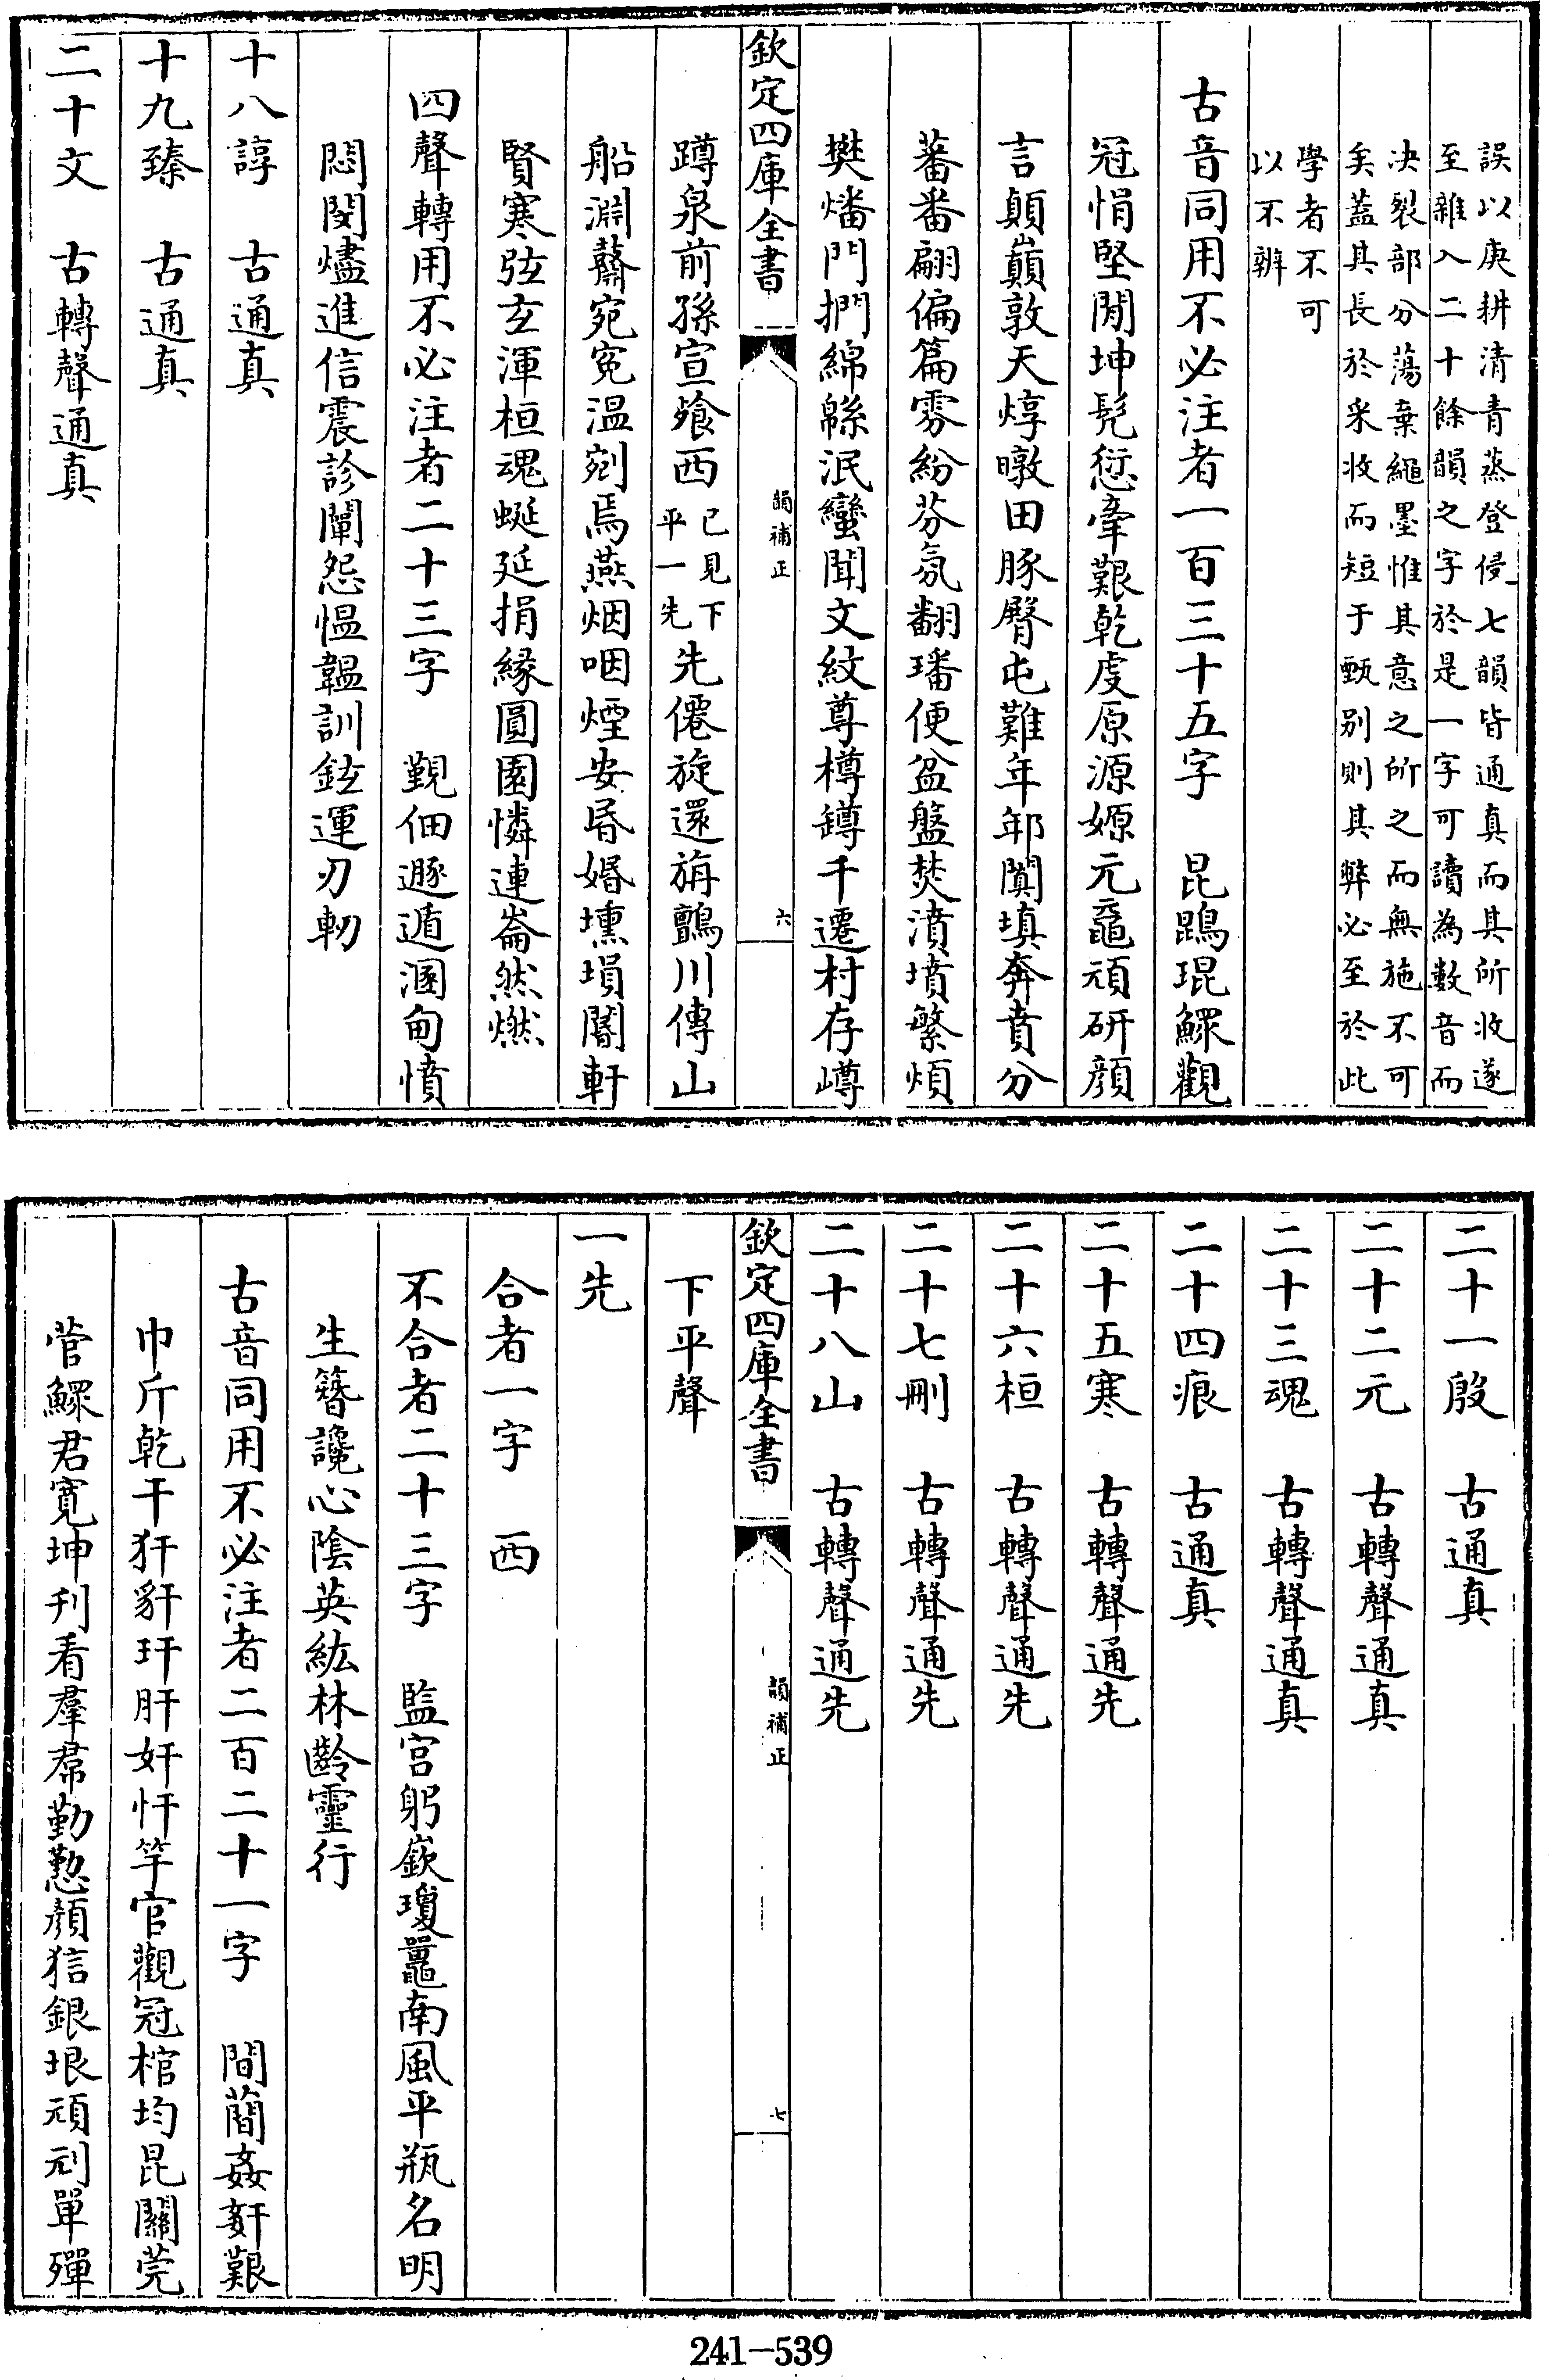 誤以庚耕清青蒸登侵七韻皆通真而其所收遂
至雜入二十餘韻之字於是一字可讀為數音而
决裂部分蕩棄繩墨惟其意之所之而無施不可
矣蓋其長於采收而短于甄别則其弊必至於此
學者不可
以不辨
古音同用不必注者一百三十五字　昆鵾琨鰥觀
冠悁堅閒坤髡愆牽艱乾虔原源嫄元黿頑研顔
言顛巔敦天焞暾田豚臀屯難年邾闐填奔賁分
蕃番翩偏篇雰紛芬氛翻璠便盆盤焚濆墳繁煩
樊燔門捫綿緜泯蠻聞文紋尊樽罇千遷村存嶟
欽定四庫全書
韻補正
六
蹲泉前孫宣飱西
已見下
平一先
先僊旋還旃鸇川傳山
船淵鼘宛寃温剜焉燕烟咽煙安昬婚壎塤闇軒
賢寒弦玄渾桓魂蜒延捐縁圓園憐連崙然燃
四聲轉用不必注者二十三字　覲佃遯遁溷甸憤
悶閔燼進信震診闡怨愠韞訓鉉運刃軔
十八諄　古通真
十九臻　古通真
二十文　古轉聲通真
二十一殷　古通真
二十二元　古轉聲通真
二十三魂　古轉聲通真
二十四痕　古通真
二十五寒　古轉聲通先
二十六桓　古轉聲通先
二十七刪　古轉聲通先
二十八山　古轉聲通先
欽定四庫全書
韻補正
七
下平聲
一先
合者一字　西
不合者二十三字　監宫躬嶔瓊鼉南風平瓶名明
生簪讒心陰英紘林齡靈行
古音同用不必注者二百二十一字　間蕑姦奸艱
巾斤乾干犴豻玕肝奸忓竿官觀冠棺均昆關莞
菅鰥君寛坤刋看羣帬勤懃顔狺銀垠頑刓單殫
241-539